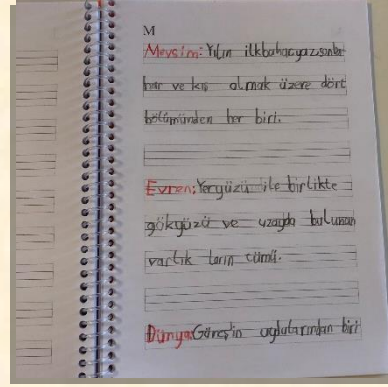 M
Mevsim: Yılın ilkbahar, yaz, sonba
har ve kış olmak üzere dört
bölümünden her biri.
Evren: Yeryüzü ile birlikte
gökyüzü ve uzayda bulunan
varlık ların tümü.
Dünya: Güneş'in uydularından biri